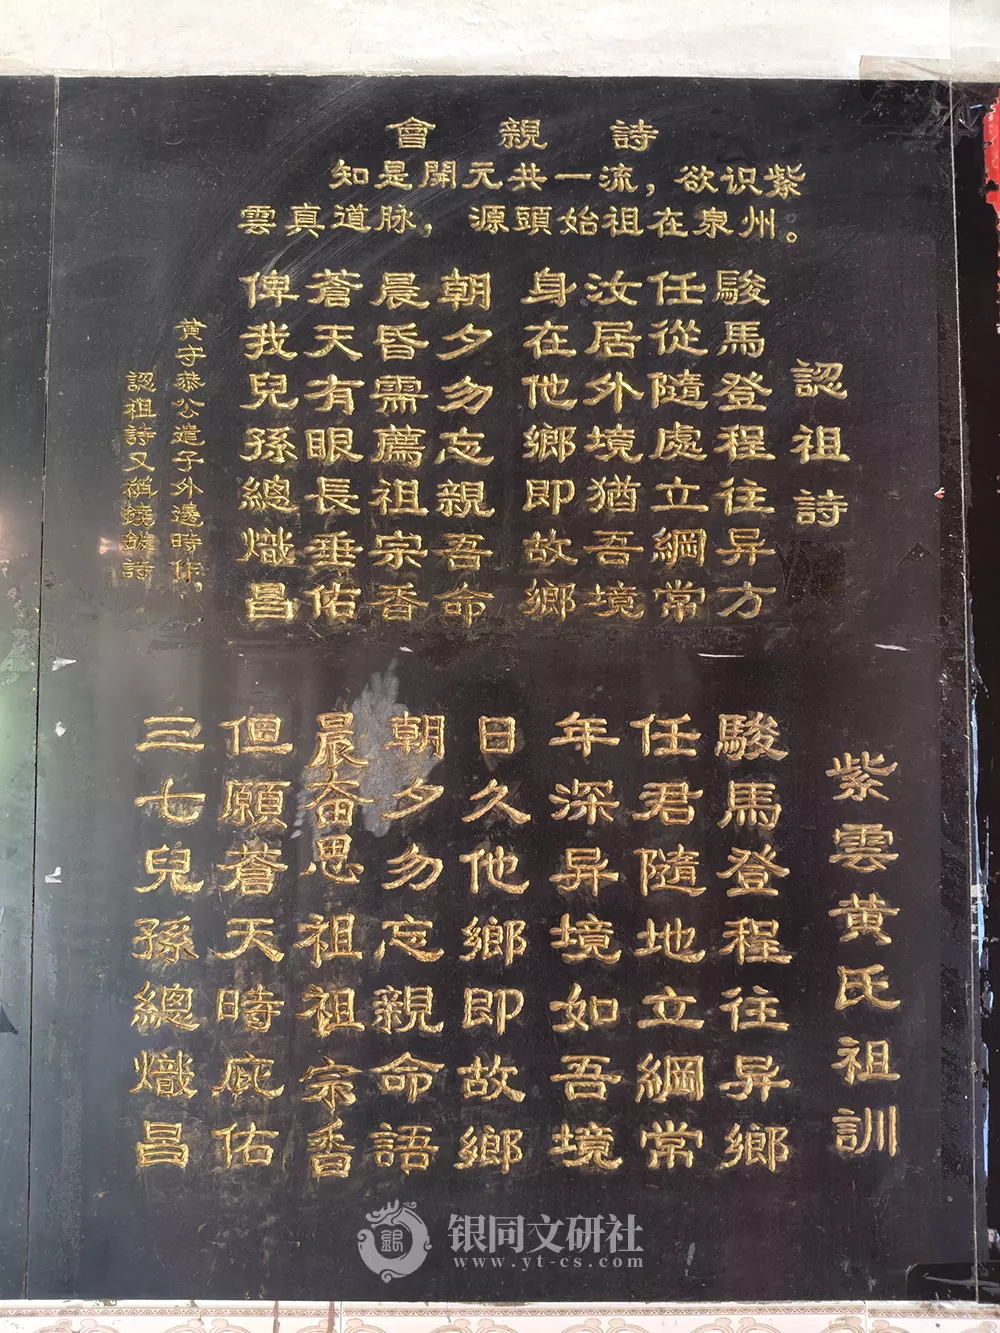 會親詩
知是開元共一流，欲识紫
雲真道脉，源頭始祖在泉州。
認祖詩
駿馬登程往异方
任從隨處立綱常
汝居外境猶吾境
身在他鄉即故鄉
朝夕勿忘親吾命
晨昏需薦祖宗香
蒼天有眼長垂佑
俾我兒孫總熾昌
黄守恭公遣子外邊時作，
認祖詩又稱錢詩
紫雲黄氏祖訓
駿馬登程往异鄉
任君隨地立綱常
年深异境如吾境
日久他鄉即故鄉
朝夕勿忘親命語
晨奋思祖祖宗香
但願蒼天時庇佑
三七兒孫總熾昌
银同文研社
www.yt-cs.com
銀